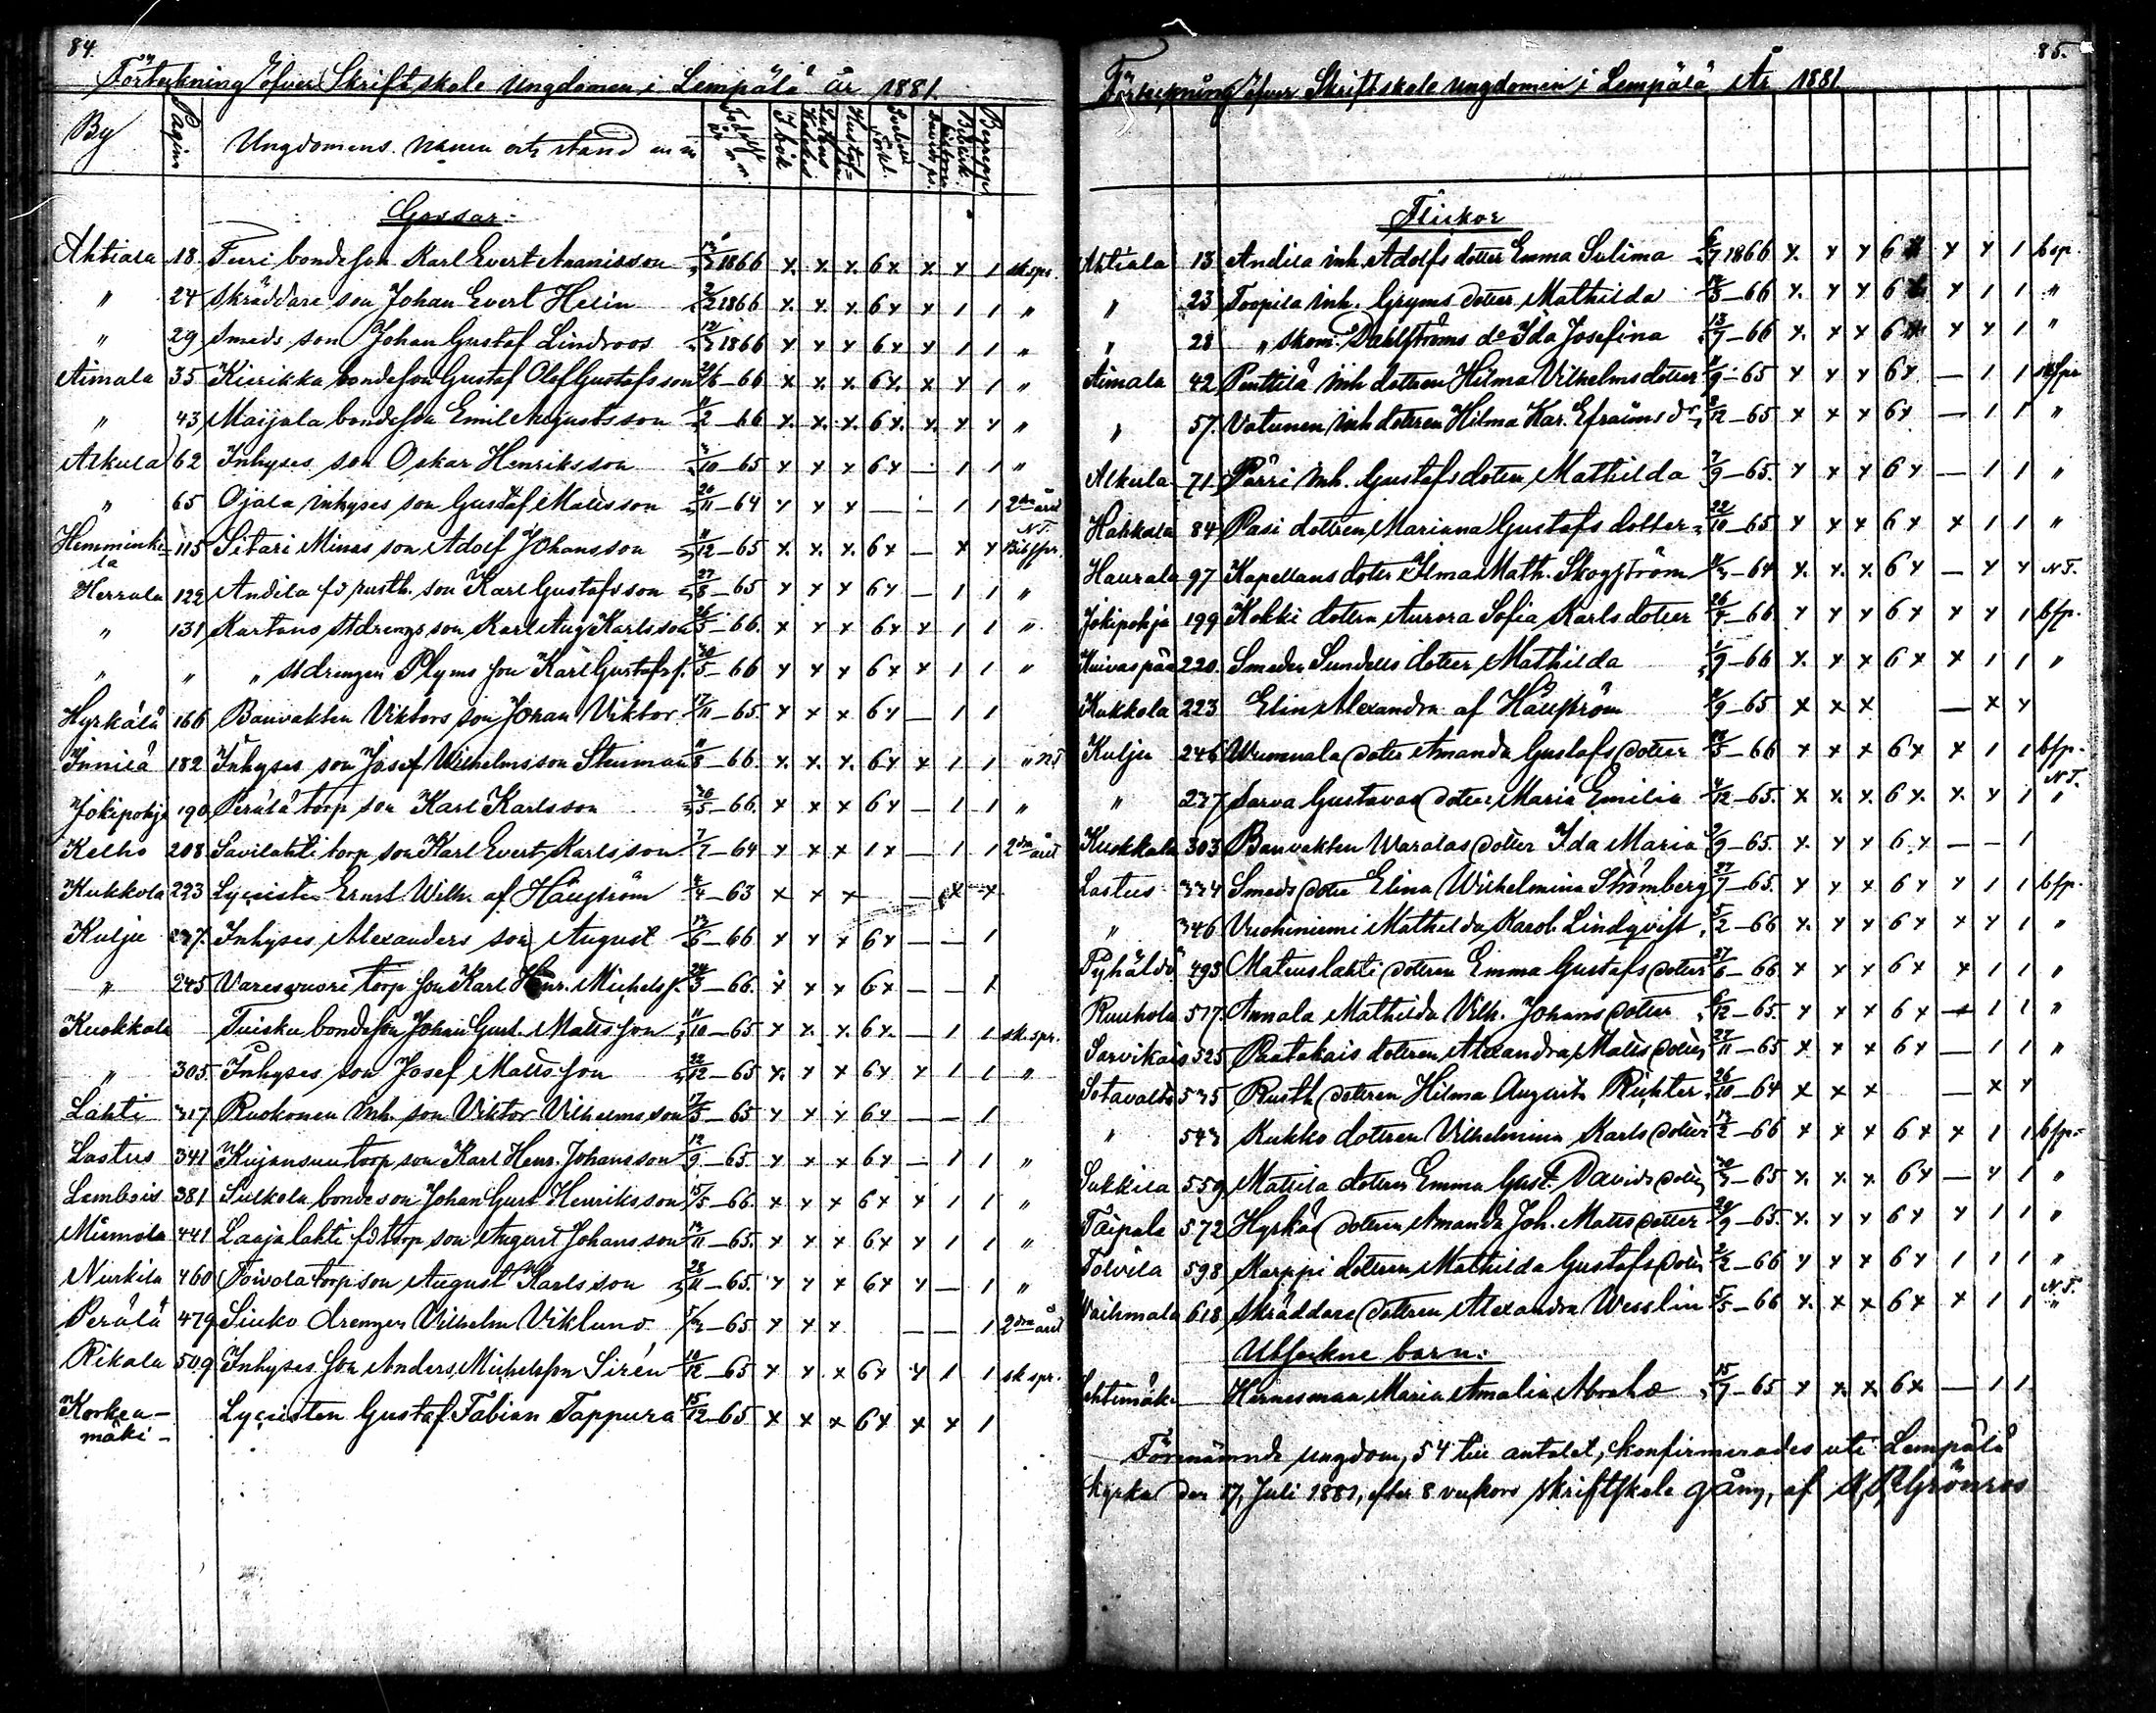 84.
Förteckning öfver Skriftskole Ungdomen i Lempälä år 1881.
By Pagina Ungdomens namn och stånd I bok Lutheri Husta= Begrepp
Gossar.
Ahtiala 18. Furi bondeson Karl Evert Ananisson 1866 x. x. x. 6x x x 1 sk.spr.
" 24 Skräddare son Johan Evert Helin 2/2 1866 x. x. x. 6x x 1 1 "
" 29 Smeds son Johan Gustaf Lindroos 1866 x x x 6x x 1 1 "
Aimala 35 Kierikka bondeson Gustaf Olof Gustafsson 66 x x. x. 6x. x x 1 "
" 43 Maijala bondeson Emil Augustsson 11/2 -66 x. x. x. 6x. x. x x "
Alkula 62 Inhyses son Oskar Henriksson /10 -65 x x x 6x - 1 1 "
" 65 Ojala inhyses son Gustaf Mattsson 20/11 -64 x x x - - 1 1 2dra året
Hemminkilä 115 Sitari Minas son Adolf Johansson 11/12 -65 x. x. x. 6x - x x N.T. Bibspr.
Herrala 122 Andila fd rusth. son Karl Gustafsson 27/8 -65 x x x 6x - 1 1 "
" 131 Kartano stdrengs son Karl Aug Karlsson 26/5 -66. x x x 6x x 1 1 "
" " " stdrengen Plyms son Karl Gustafs. 30/5 -66 x x x 6x x 1 1 "
Hyrkälä 166 Banvakten Viktors son Johan Viktor 17/11 -65. x x x 6x - 1 1
Innilä 182 Inhyses son Josef Wilhelmsson Stenman 11/8 -66. x. x. x. 6x x 1 1 " N.T
Jokipohja 190 Perälä torp son Karl Karlsson 26/5 -66. x x x 6x - 1 1 "
Kelho 208 Savilahti torp son Karl Evert Karlsson 7/7 -64 x x x 1x - 1 1 2dra året
Kukkola 223 Lyceisten Ernst Wilh. af Hällström /4 -63 x x x - x x
Kulju 237. Inhyses Alexanders son August /6 -66 x x x 6x - - 1
" 245 Varesvuori torp son Karl Henr. Michelss. 24/3 -66. x x x 6x - - 1
Kuokkala Tuisku bondeson Johan Gust. Matts son 11/10 -65 x x. x. 6x. - 1 1 sk.spr.
" 305. Inhyses son Josef Matts son 22/12 -65 x. x x 6x x 1 1 "
Lahti 317 Ruokonen inh. son Viktor Vilhelmsson 17/3 -65 x x x 6x - - 1
Lastus 341 Kujansuu torp son Karl Henr. Johansson 12/9 -65. x x x 6x - 1 1 "
Lembois 381 Sulkola bondeson Johan Gust Henriksson 15/5 -66. x x x 6x x 1 1 "
Miemola 441 Laajalahti fd torp son August Johansson 13/11 -65. x x x 6x x 1 1 "
Nurkila 460 Toivola torp son August Karlsson 28/11 -65. x x x 6x x - 1 "
Perälä 479 Siuko drengen Vilhelm Viklund 5/3 -65 x x x - - 1 2dra året
Rikala 509 Inhyses son Anders Michelsson Sirén 10/12 -65 x x x 6x x 1 1 sk spr.
Korkea-mäki- Lyceisten Gustaf Fabian Tappura 15/12 -65 x x x 6x x x 1
85.
Förteckning öfver Skriftskole ungdomen i Lempälä År 1881
Flickor
Ahtiala 13 Andila inh. Adolfs dotter Emma Sulima 6/7 1866 x. x x 6 x x 1 bsp.
" 23 Toopila inh. Gryms dotter Mathilda 12/3 -66 x. x x 6 x 1 1 "
" 28 " skom. Dahlströms do Ida Josefina 13/7 -66 x. x x 6 x x 1 "
Aimala 42 Penttilä inh dottren Hilma Vilhelmsdotter 11/9 -65 x x x 6x - 1 1
" 57. Vatanen inh dottren Hilma Kar. Efraims dr /12 -65 x x x 6x - 1 1 "
Alkula 71 Pärri inh. Gustafs dotter Mathilda 7/9 -65. x x x 6x - 1 1 "
Hakkala 84 Pasi dottren Mariana Gustafs dotter 22/10 -65 x x x 6x x 1 1 "
Haurala 97 Kapellans dotter Ilma Math. Skogström 11/3 -64 x. x. x. 6x - x x N.T.
Jokipohja 199 Kokki dottern Aurora Sofia Karls dotter 26/4 -66 x x x 6x x x 1 bsp.
Kuivaspää 220. Smeden Sundells dotter Mathilda 1/9 -66 x. x x 6x x 1 1 "
Kukkola 223 Elin Alexandra af Hällström /9 -65 x x x - x x
Kulju 246 Wummala dotter Amanda Gustafs dotter 18/5 -66 x x x 6x x 1 1 bsp.
" 237 Sarva Gustavas dotter Maria Emilia 4/12 -65. x x. x. 6x. x. x 1 N.T. "
Kuokkala 303 Banvakten Waralas dotter Ida Maria 9/9 -65. x. x x 6x - - 1
Lastus 334 Smeds dotter Elina Wilhelmina Strömberg 27/7 -65. x x x 6x x 1 1 bsp.
" 346 Vuohiniemi Mathilda Karol. Lindqvist 5/2 -66 x. x x 6x x x 1 "
Pyhältö 493 Matuslahti dottren Emma Gustafs dotter 27/6 -66 x x x 6x x 1 1 "
Ruuhola 517. Annala Mathilda Vilh. Johans dotter 6/12 -65. x x x 6x 1 1 "
Sarvikais 525 Paatakais dottren Alexandra Matts dotter 27/11 -65 x x x 6x - 1 1 "
Sotavalta 535 Rusth dottren Hilma Augusta Richter 26/10 -64 x x x - x x
" 543 Kukko dottren Vilhelmina Karls dotter 13/2 -66 x x x 6x x 1 1 bsp.
Sukkila 559 Mattila dottren Emma Gust. Davids dotter 30/3 -65 x. x. x. 6x - x 1 "
Taipale 572 Hyrkä dottren Amanda Joh. Matts dotter 24/9 -65. x. x x 6x x 1 1 "
Toivila 598 Karppi dottren Mathilda Gustafs dottr 2/2 -66 x x x 6x 1 1 1 "
Vaihmala 618 Skräddare dottren Alexandra Wesslin 5/5 -66 x. x x 6x x 1 1 N.T. "
Utsockne barn:
Lehtimäki - Hernesmaa Maria Amalia Abrah. 15/7 -65 x x. x 6x - 1 1
Förenämnde ungdom, 54 till antalet, konfirmerades uti Lempälä
Kyrka den 17, Juli 1881, efter 8 veckors skriftskole gång, af Grönroos